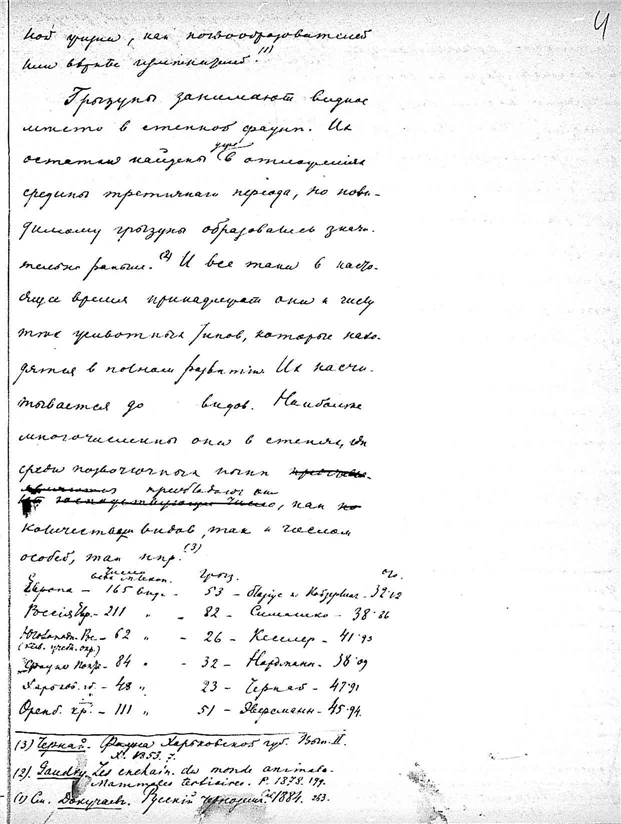 4
ной фауны, как почвообразователей
или вѣрнѣе
Грызуны занимаютъ видное
мѣсто в степной фаунѣ. Их
остатки найдены уже в отложеніях
средины третичнаго періода, но пови-
димому грызуны образовались значи-
тельно раньше.(2) И все таки в насто-
ящее время принадлежат они к числу
тѣх животных типов, которые нахо-
дятся в полном развитіи. Их насчи-
тывается до видов. Наиболѣе
многочисленны они в степях, гдѣ
среди позвоночных
преобладают они
господствующее число, как по
количеству видов, так и числом
особей, так нпр.(3)
Число
всѣх млекоп. Грыз. %.
Европа – 165 вид. – 53 – Блазіус и Кайзерлинг – 32.12
Россія Евр. – 211 „ – 82 – Симашко – 38.86
Югозападн. Рос. – 62 „ – 26 – Кесслер – 41.93
(Кіев. учебн. окр.)
Фауна Понт. – 84 „ – 32 – Нордманн – 38.09
Харьков. г. – 48 „ 23 – Чернай – 47.91
Оренб. кр. – 111 „ 51 – Эверсманн – 45.94.
(3) Чернай. Фауна Харьковской губ. Вып. II.
Х. 1853. 7.
(2). Gaudry. Les enchain. du monde animal.
Mammifères tertiaires. P. 1878.
(1) См. Докучаев. Русскій чернозем. 1884. 253.